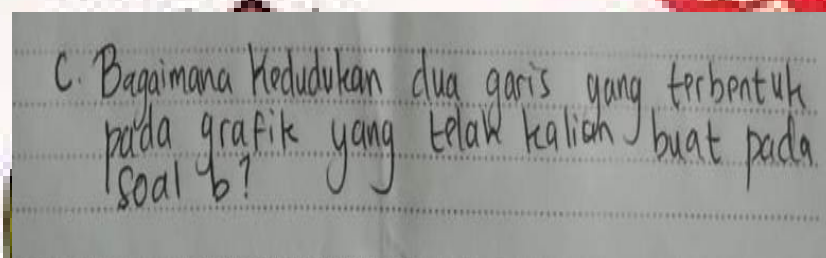 C. Bagaimana Kedudukan dua garis yang terbentuk
pada grafik yang telah kalian buat pada
soal b?